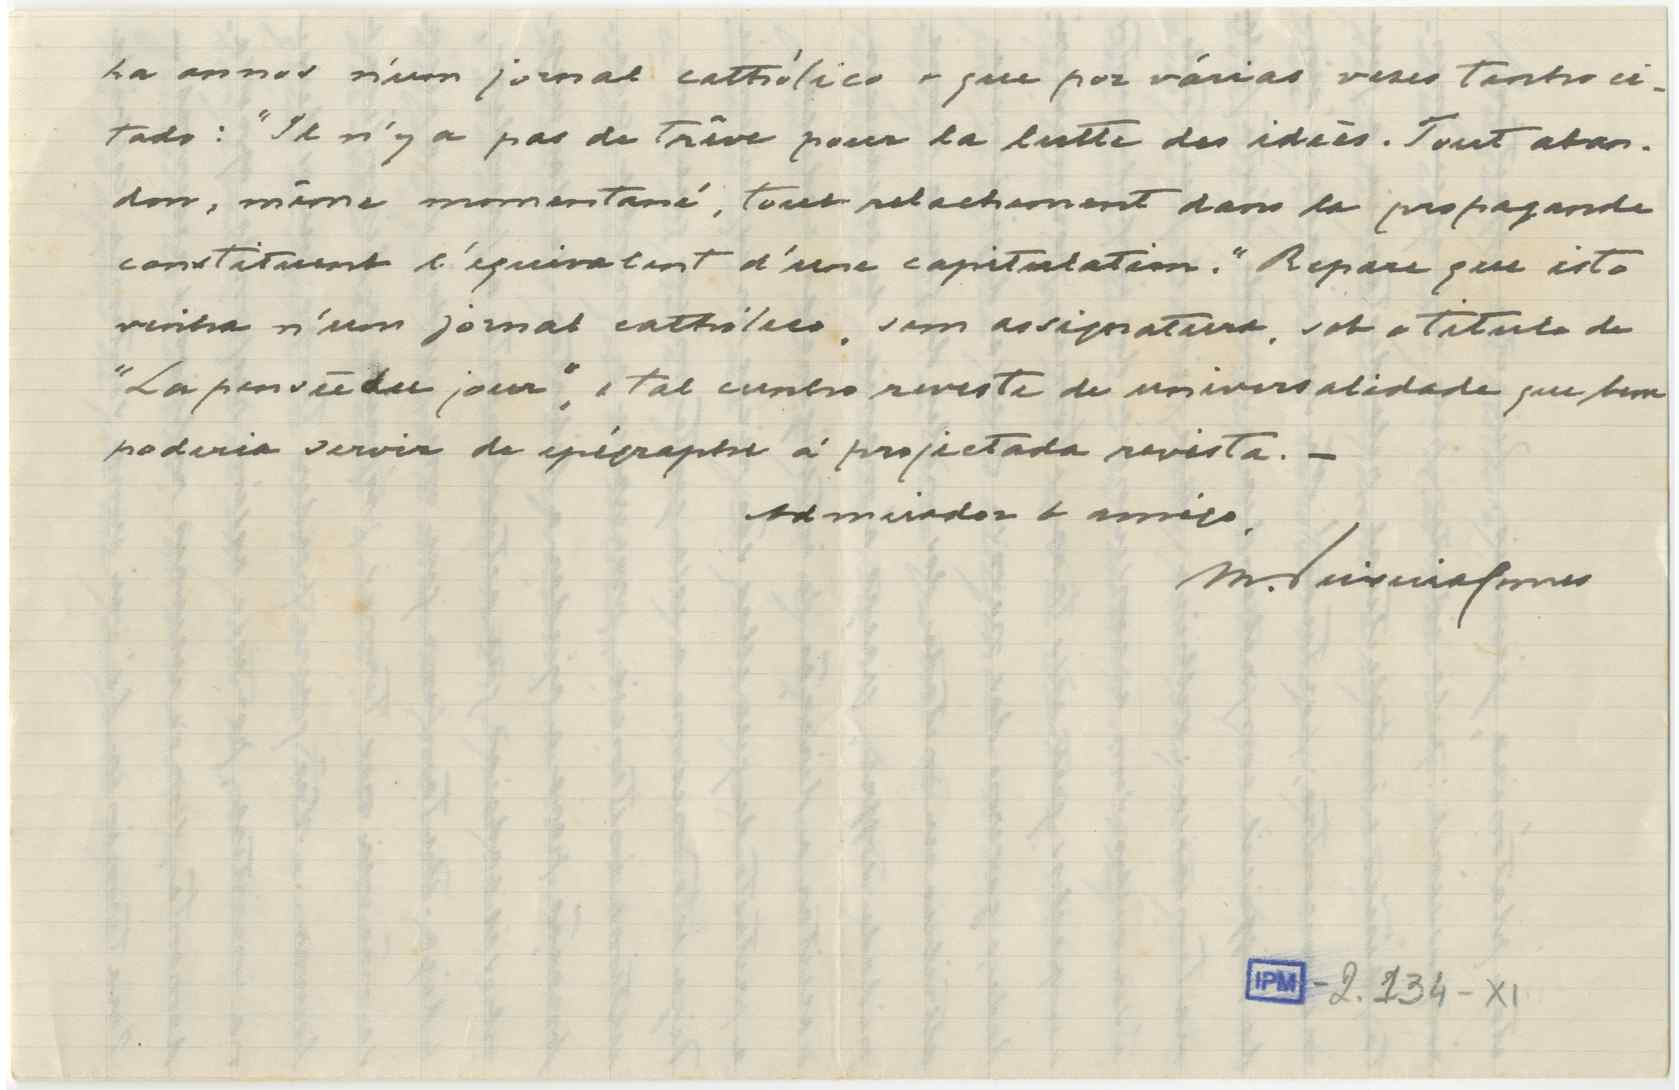 ha annos n'um jornal cathólico e que por várias vezes tenho ci-
tado: "Il n'y a pas de trêve pour la lutte des idées. Tout aban-
don, même momentané, tout relachement dans la propagande
constituent l'équivalent d'une capitulation." Repare que isto
vinha n'um jornal cathólico, sem assignatura, sob o titulo de
"La pensée du jour", e tal cunho reveste de universalidade que bem
poderia servir de epígraphe á projectada revista. —
Admirador e amigo,
M. Teixeira Gomes
IPM - 2. 134 - XI